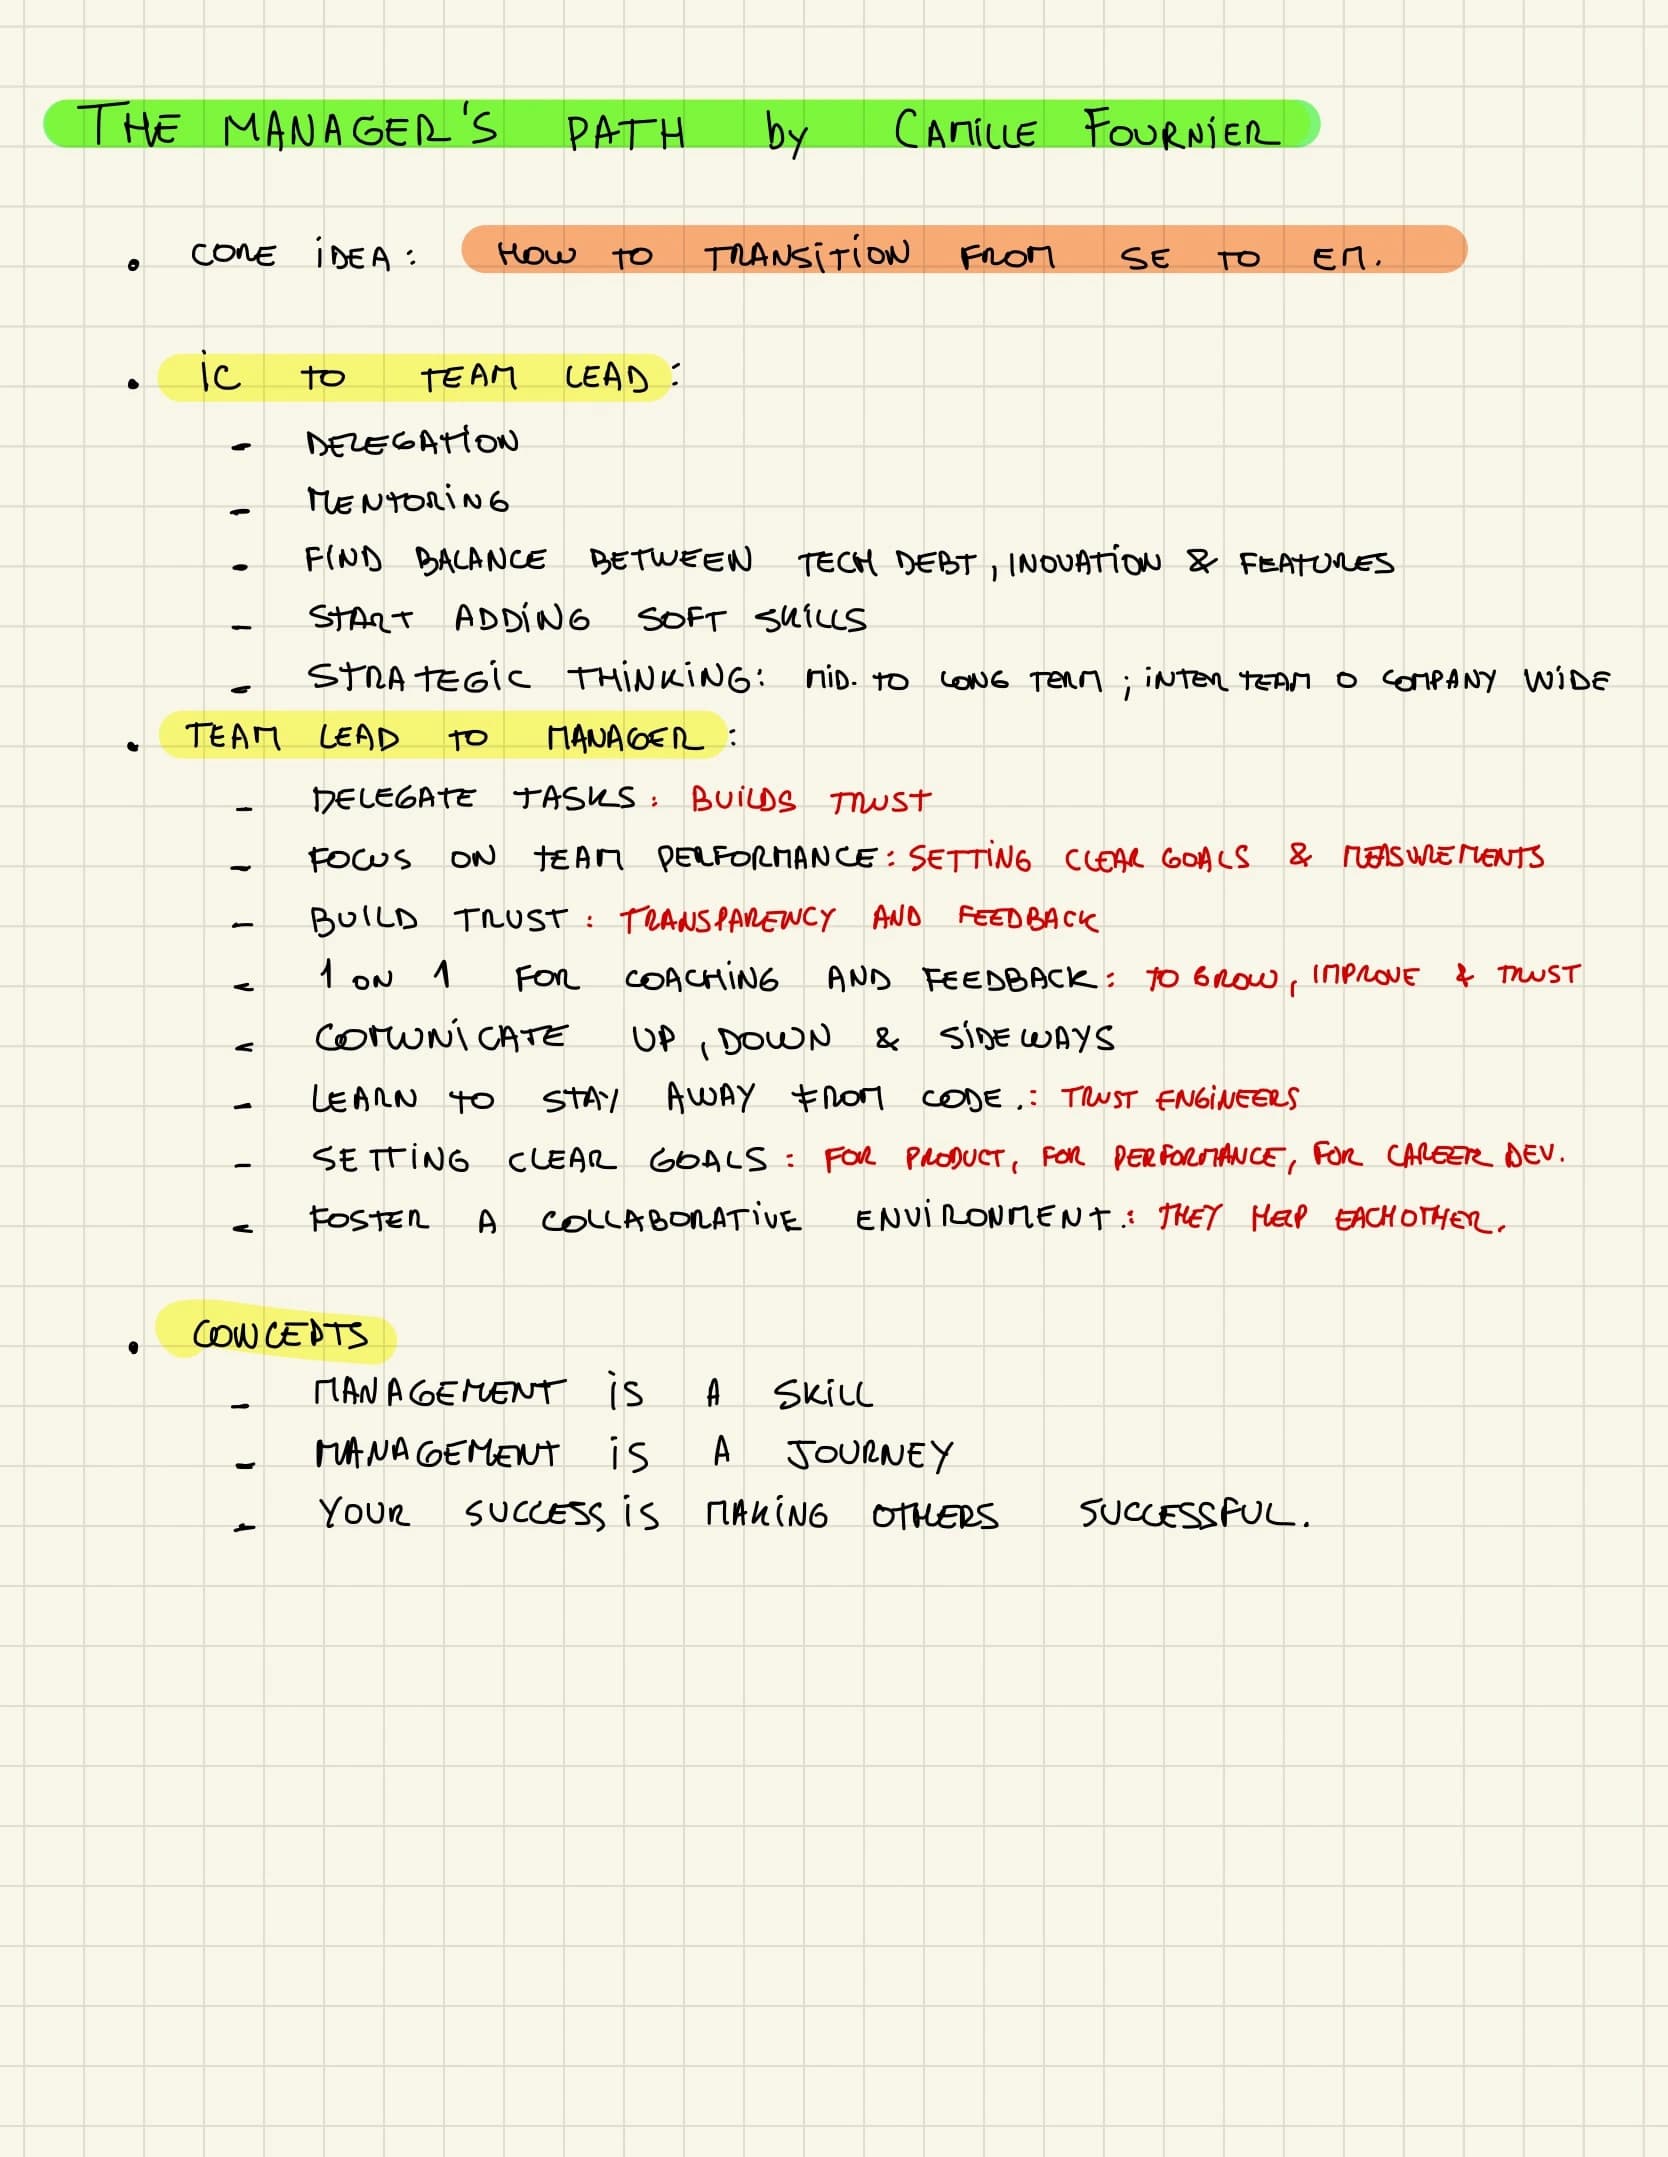 THE MANAGER'S PATH by CAMILLE FOURNIER
• CORE IDEA: HOW TO TRANSITION FROM SE TO EM.
• IC TO TEAM LEAD:
- DELEGATION
- MENTORING
- FIND BALANCE BETWEEN TECH DEBT, INOVATION & FEATURES
- START ADDING SOFT SKILLS
- STRATEGIC THINKING: MID. TO LONG TERM; INTER TEAM O COMPANY WIDE
• TEAM LEAD TO MANAGER:
- DELEGATE TASKS: BUILDS TRUST
- FOCUS ON TEAM PERFORMANCE: SETTING CLEAR GOALS & MEASUREMENTS
- BUILD TRUST: TRANSPARENCY AND FEEDBACK
- 1 ON 1 FOR COACHING AND FEEDBACK: TO GROW, IMPROVE & TRUST
- COMUNICATE UP, DOWN & SIDEWAYS
- LEARN TO STAY AWAY FROM CODE.: TRUST ENGINEERS
- SETTING CLEAR GOALS: FOR PRODUCT, FOR PERFORMANCE, FOR CAREER DEV.
- FOSTER A COLLABORATIVE ENVIRONMENT.: THEY HELP EACHOTHER.
• CONCEPTS
- MANAGEMENT IS A SKILL
- MANAGEMENT IS A JOURNEY
- YOUR SUCCESS IS MAKING OTHERS SUCCESSFUL.